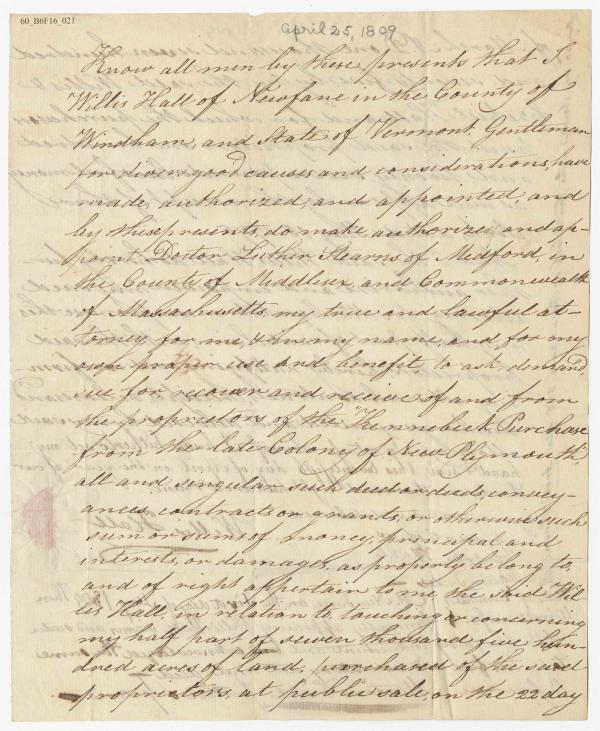 60_B6F16_021
April 25, 1809
Know all men by these presents that I
Willis Hall of Newfane in the County of
Windham, and State of Vermont, Gentleman
for divers good causes and considerations have
made, authorized, and appointed, and
by these presents, do make, authorize, and ap-
point, Doctor Luther Stearns of Medford, in
the County of Middlesex, and Commonwealth
of Massachusetts, my true and lawful at-
torney, for me, & in my name, and, for my
own proper use and benefit, to ask, demand,
sue for, recover and receive of and from
the proprietors of the "Kennebeck Purchase
from the late Colony of New Plymouth",
all and singular such deed or deeds, convey-
ances, contracts or grants, or otherwise such
sum or sums of money, principal and
interests, or damages, as properly belong to,
and of right appertain to me the said Wil-
lis Hall, in relation to, touching or concerning
my half part of seven thousand five hun-
dred acres of land, purchased of the said
proprietors, at public sale, on the 22 day